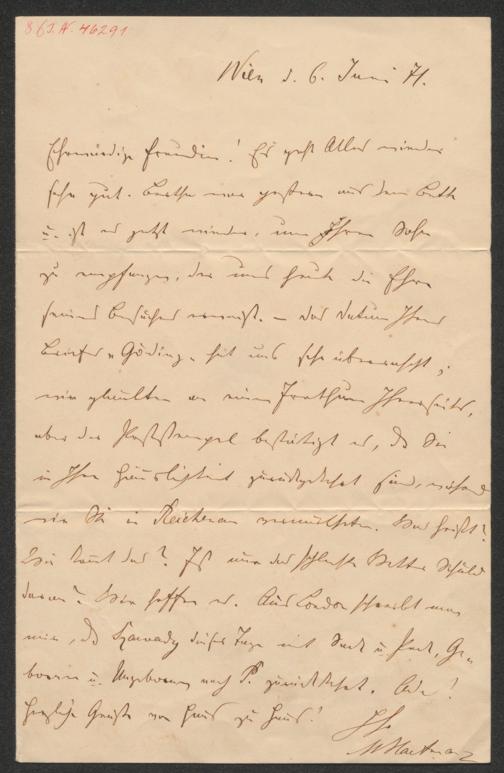 I. N. 46291
Wien d. 6. Juni 71.
Ehrwürdige Freundin! Es geht Alles wieder
sehr gut. Bertha war gestern aus dem Bette
u. ist es jetzt wieder, um Ihren Sohn
zu empfangen, der uns heute die Ehre
seines Besuches erweist. – Das Datum Ihres
Briefes „Göding“ hat uns sehr überrascht;
wir glaubten an einen Irrthum Ihrerseits,
aber der Poststempel bestätigt es, daß Sie
in Ihre Häuslichkeit zurückgekehrt sind, während
wir Sie in Reichenau vermutheten. Was heißt?
Wie kommt das? Ist nur das schlechte Wetter Schuld
daran? Wir hoffen es. Aus London schreibt man
mir, daß Szarvady dieser Tage mit Sack u. Pack, Ge-
borenen u. Ungeborenen nach P. zurückkehrt. Ade!
Herzliche Grüße von Haus zu Haus!
Ihr
MHartmann